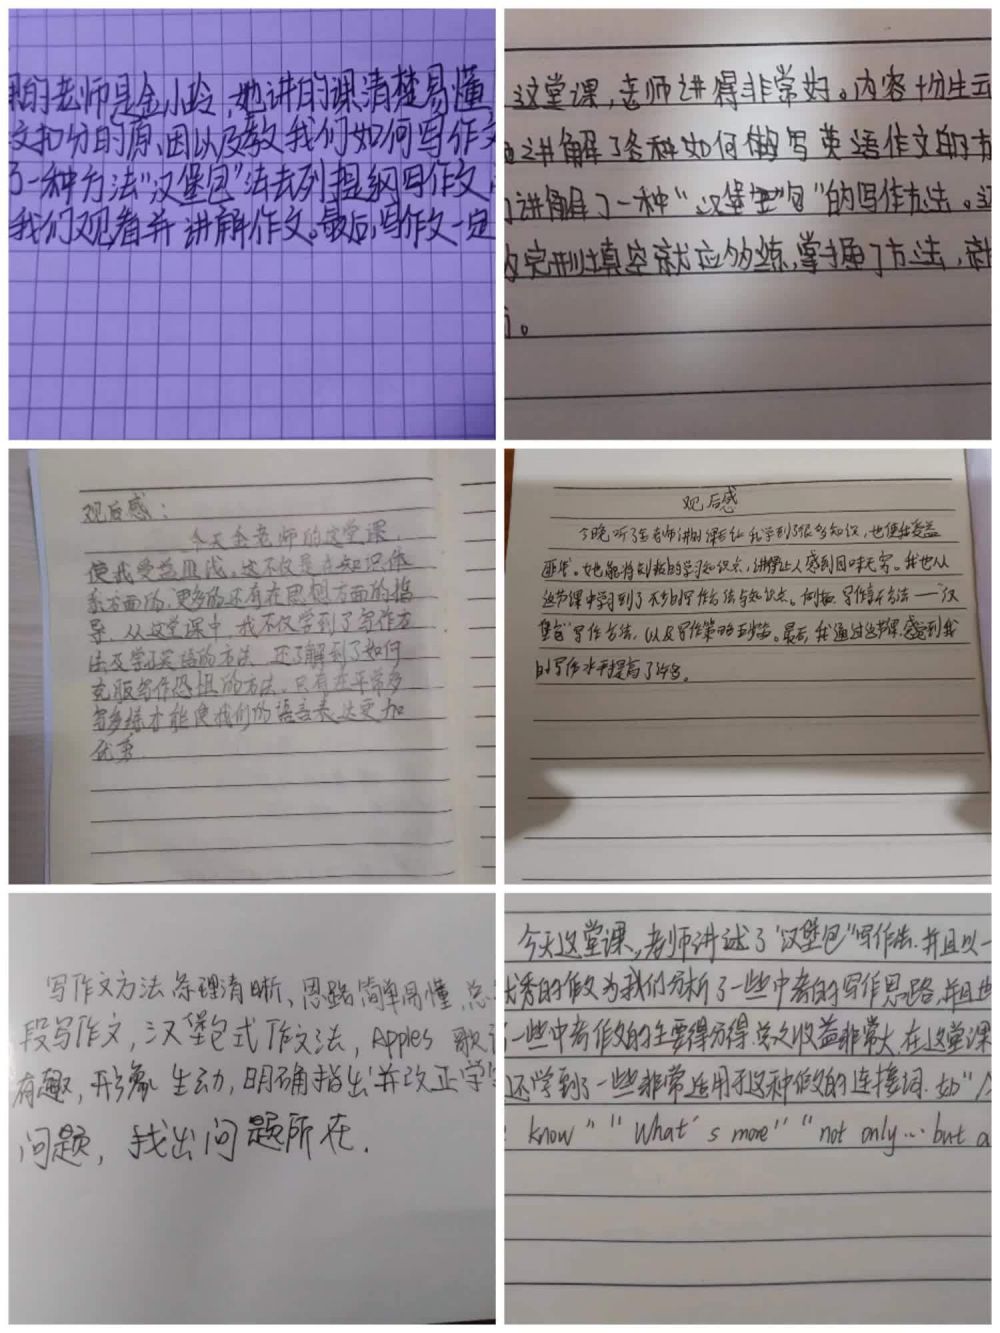 的老师是金小玲,她讲的课清楚易懂
文扣分的原因以及教我们如何写作文
了一种方法“汉堡包”法去列提纲写作文
我们观看并讲解作文。最后,写作文一定
这堂课,老师讲得非常好。内容十分生云
讲解了各种如何做写英语作文的方
讲解了一种“汉堡包”的写作方法。
的完形填空就应多练,掌握了方法,就
。
观后感:
今天金老师的这堂课,
使我受益匪浅。这不仅是在知识体
系方面的,更多的还有在思想方面的指
导。从这堂课中,我不仅学到了写作方
法及学习英语的方法,还了解到了如何
克服写作恐惧的方法。只有在平常多
写多练才能使我们的语言表达更加
优秀.
观后感
今晚听了金老师讲的课后让我学到了很多知识,也使我受益
匪浅。她能将的学习知识点,讲得让人感到回味无穷。我也从
这节课中学习到了不少的写作方法与知识点。例如:写作新方法——“汉
堡包”写作方法,以及写作策略五步。最后,我通过这节课,感觉到我
的写作水平提高了许多。
写作文方法条理清晰、思路简单易懂,总
段写作文,汉堡包式作文法,Apples 歌
有趣,形象生动,明确指出并改正学
问题,找出问题所在.
今天这堂课,老师讲述了“汉堡包”写作法.并且以一
优秀的作文为我们分析了一些中考的写作思路,并且也
一些中考作文的主要得分得.总之收益非常大.在这堂课
还学到了一些非常适用于这种作文的连接词.如“
know” “What's more” “not only... but a